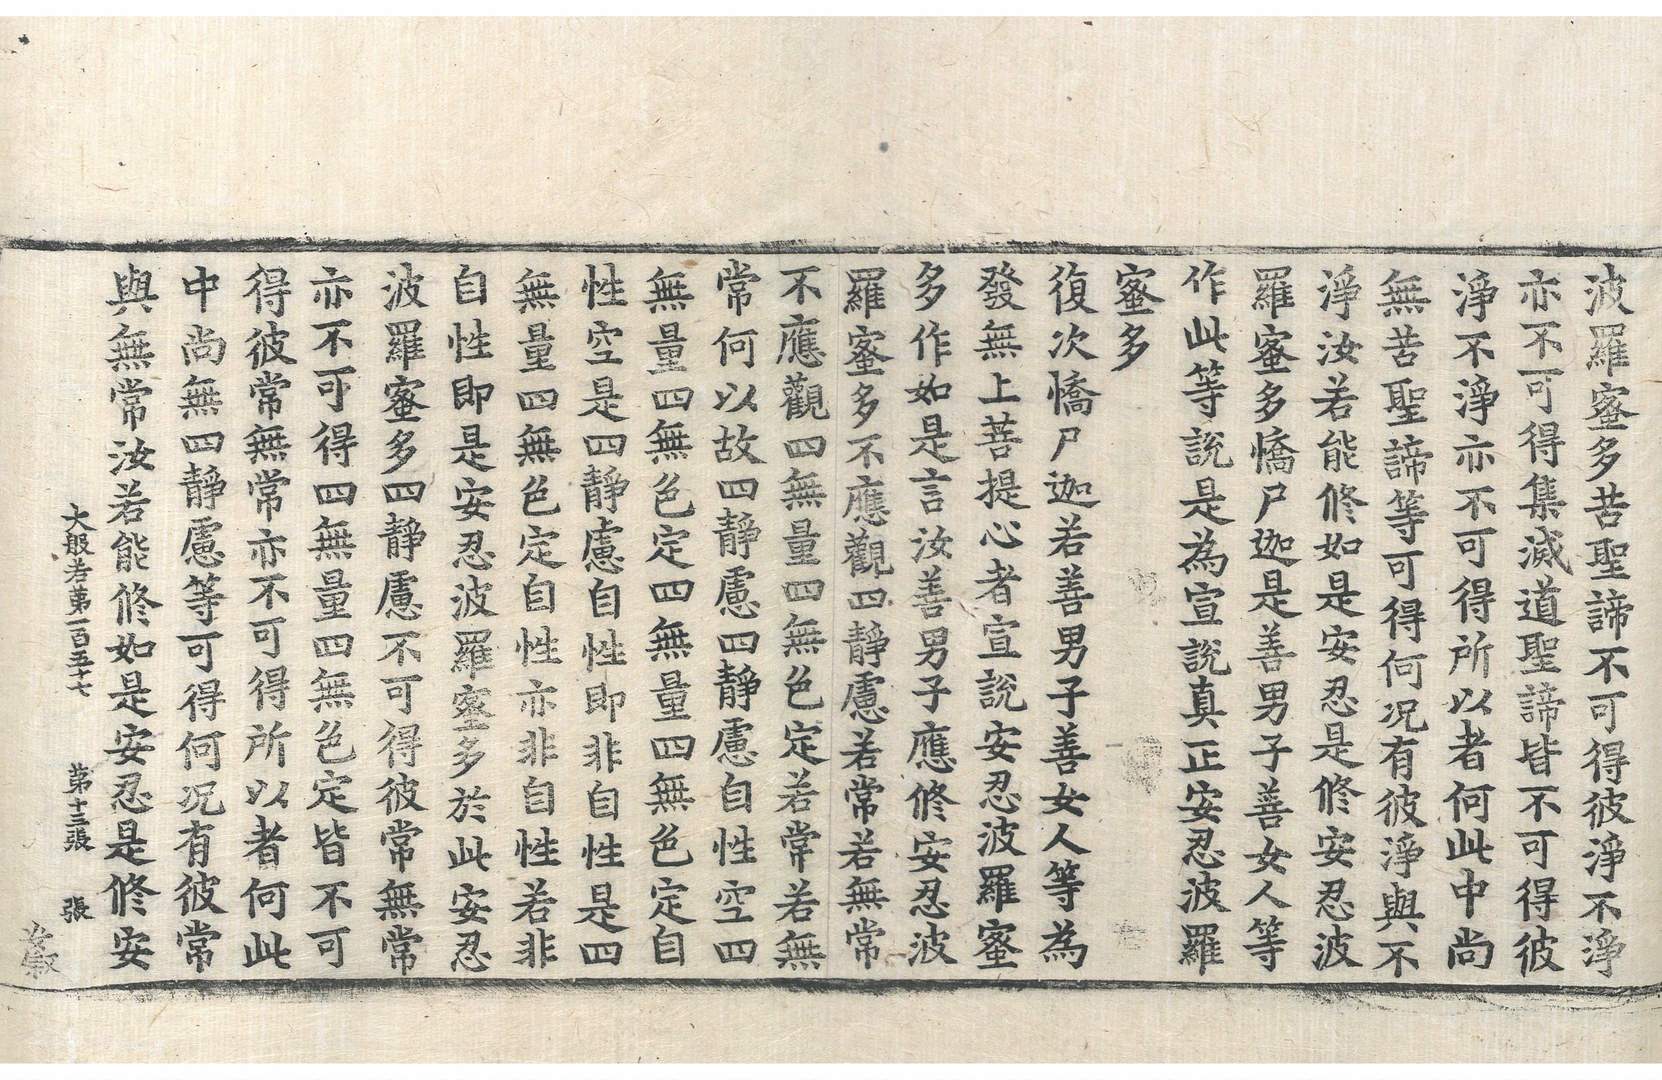 波羅蜜多苦聖諦不可得彼淨不淨
亦不可得集滅道聖諦皆不可得彼
淨不淨亦不可得所以者何此中尚
無苦聖諦等可得何況有彼淨與不
淨汝若能修如是安忍是修安忍波
羅蜜多憍尸迦是善男子善女人等
作此等說是為宣說真正安忍波羅
蜜多
復次憍尸迦若善男子善女人等為
發無上菩提心者宣說安忍波羅蜜
多作如是言汝善男子應修安忍波
羅蜜多不應觀四靜慮若常若無常
不應觀四無量四無色定若常若無
常何以故四靜慮四靜慮自性空四
無量四無色定四無量四無色定自
性空是四靜慮自性即非自性是四
無量四無色定自性亦非自性若非
自性即是安忍波羅蜜多於此安忍
波羅蜜多四靜慮不可得彼常無常
亦不可得四無量四無色定皆不可
得彼常無常亦不可得所以者何此
中尚無四靜慮等可得何況有彼常
與無常汝若能修如是安忍是修安
大般若第一百五十七 第十三張 張